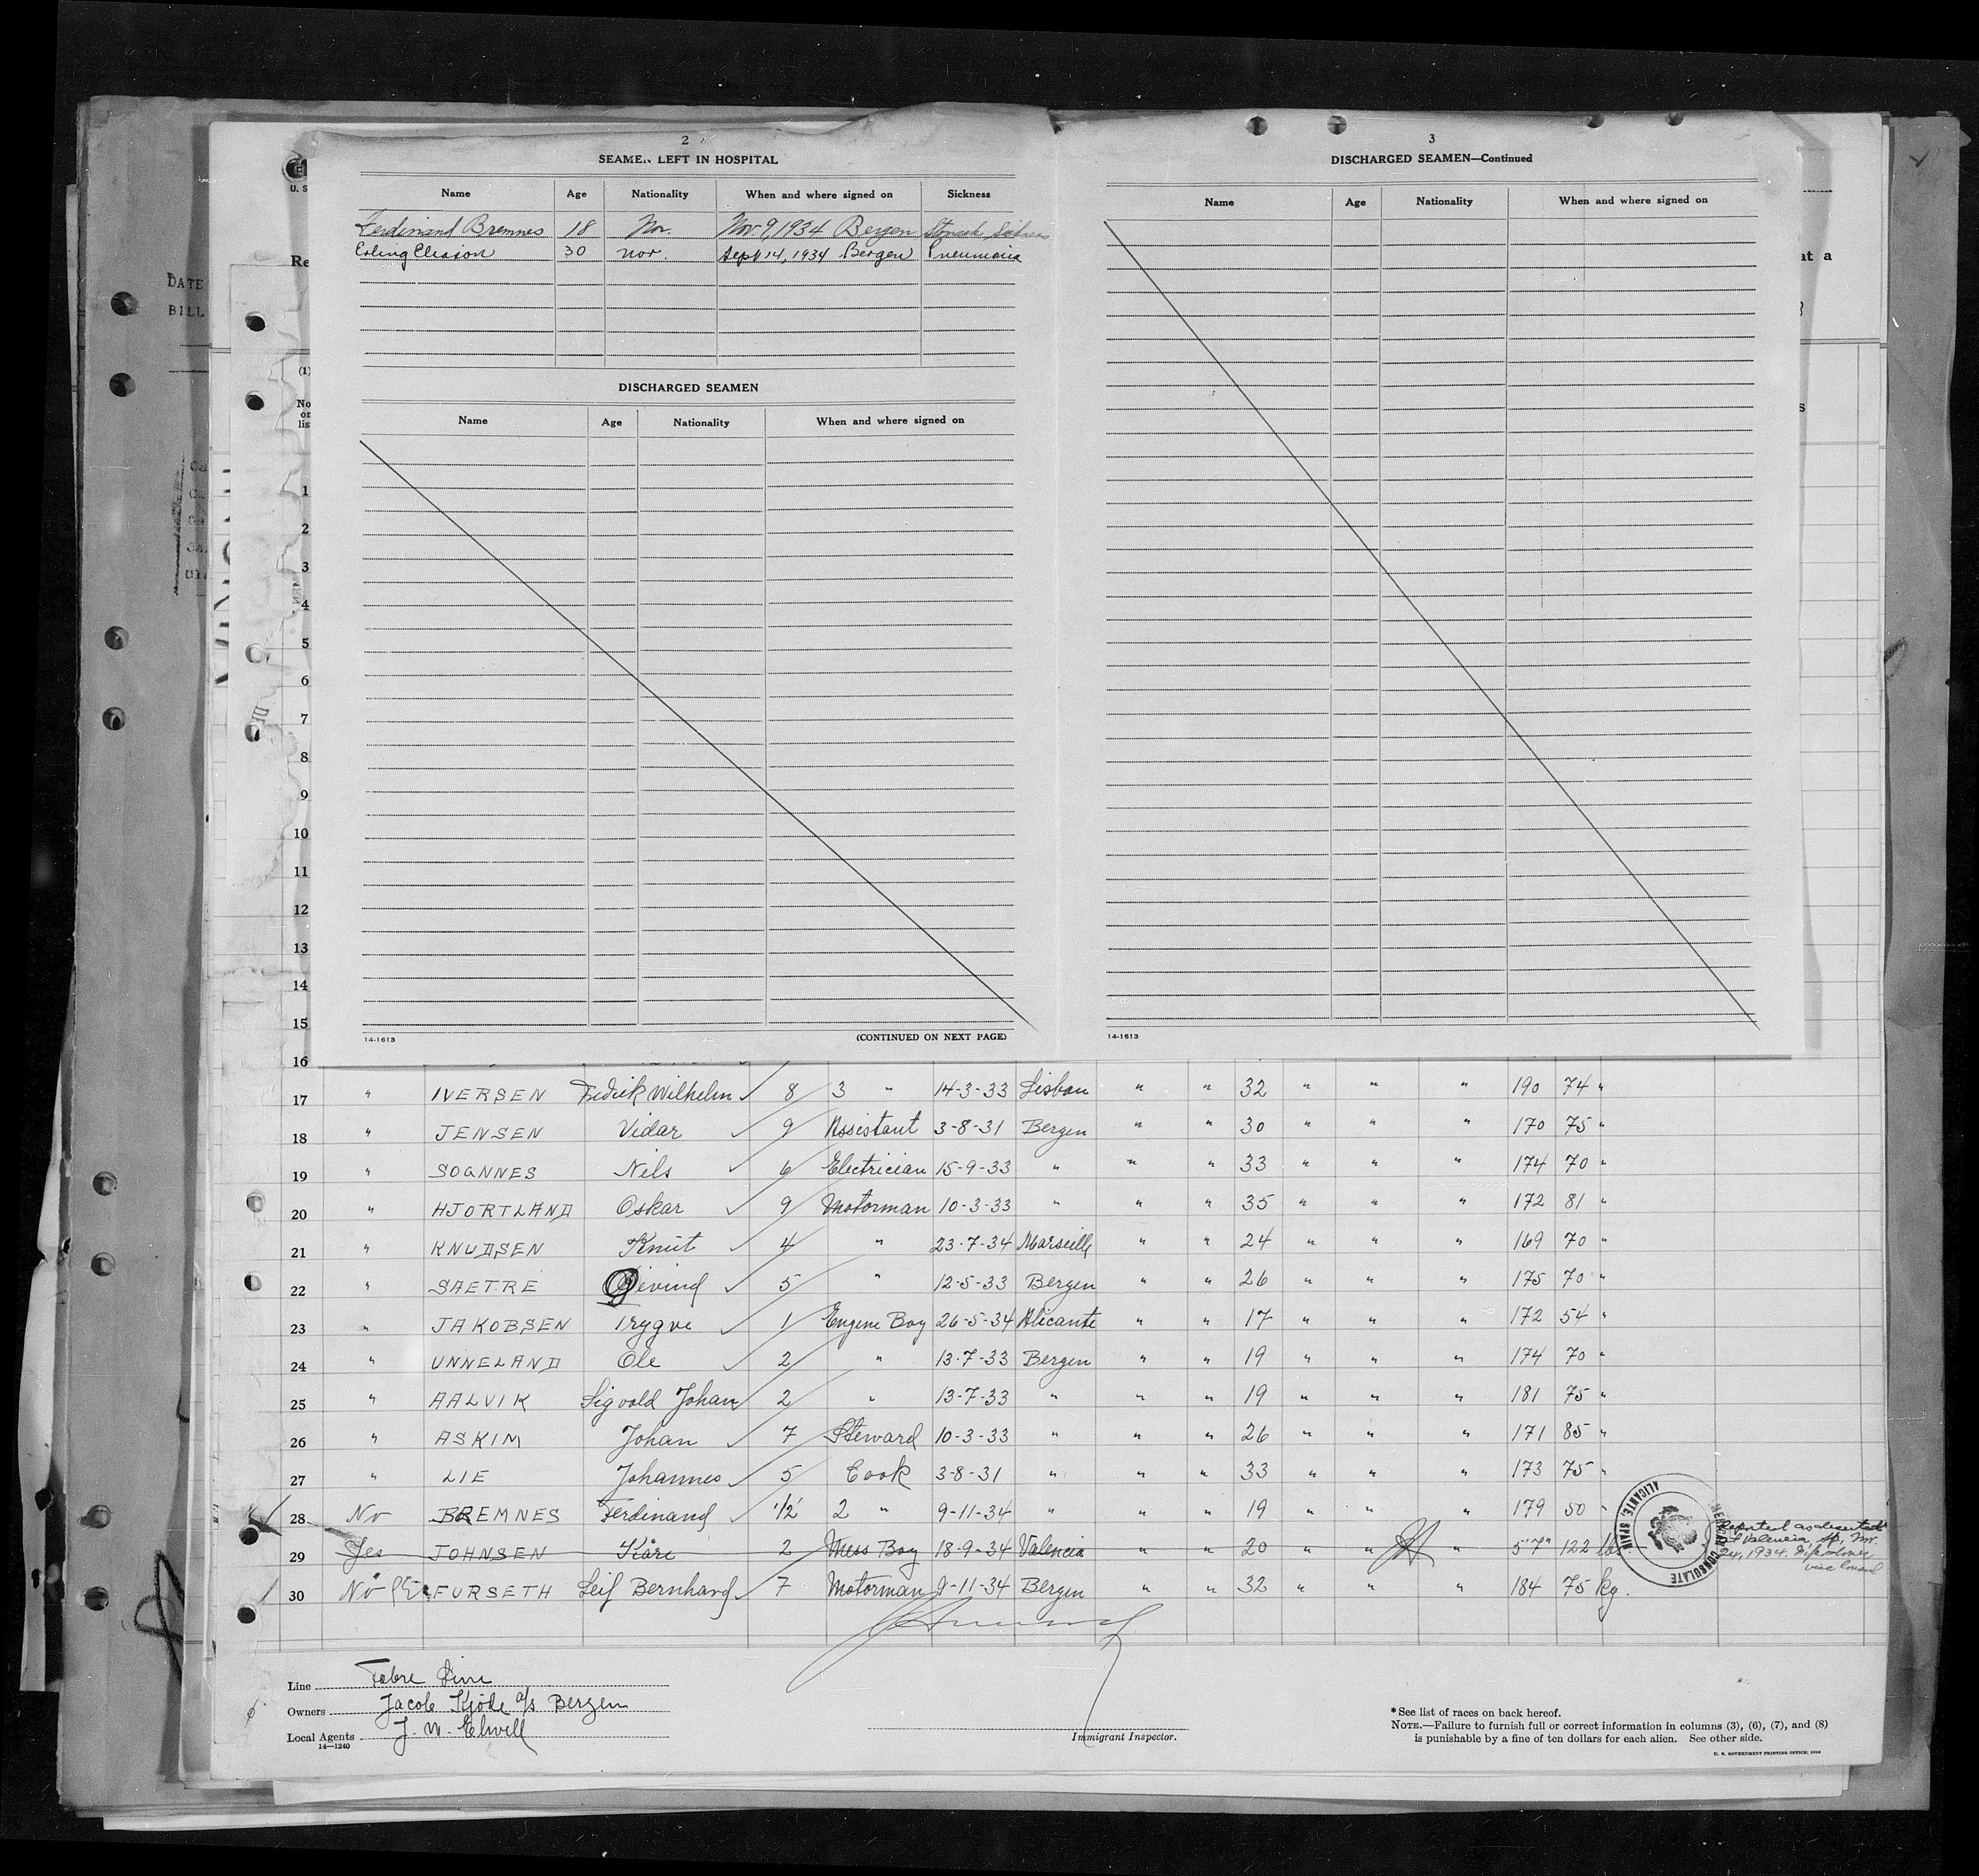 2
SEAMEN LEFT IN HOSPITAL
Name Age Nationality When and where signed on Sickness
Ferdinand Bremnes 18 Nor. Nov 9, 1934 Bergen Stomach Sickness
Erling Eliason 30 nor. Sept 14, 1934 Bergen Pneumonia
DISCHARGED SEAMEN
Name Age Nationality When and where signed on
14-1613 (CONTINUED ON NEXT PAGE)
3
DISCHARGED SEAMEN—Continued
Name Age Nationality When and where signed on
14-1613
U. S
Re
at a
DATE
BILL
(1)
No
or
lis
s
1
2
3
4
5
6
7
8
9
10
11
12
13
14
15
16
17 " IVERSEN Fredrik Wilhelm ✓ 8 3 " 14-3-33 Lisbon " " 32 " " " 190 74 "
18 " JENSEN Vidar ✓ 9 Assistant 3-8-31 Bergen " " 30 " " " 170 75 "
19 " SOGNNES Nils ✓ 6 Electrician 15-9-33 " " " 33 " " " 174 70 "
20 " HJORTLAND Oskar ✓ 9 Motorman 10-3-33 " " " 35 " " " 172 81 "
21 " KNUDSEN Knut ✓ 4 " 23-7-34 Marseille " " 24 " " " 169 70 "
22 " SAETRE Oeivind ✓ 5 " 12-5-33 Bergen " " 26 " " " 175 70 "
23 " JAKOBSEN Trygve ✓ 1 Engine Boy 26-5-34 Alicante " " 17 " " " 172 54 "
24 " UNNELAND Ole ✓ 2 " 13-7-33 Bergen " " 19 " " " 174 70 "
25 " AALVIK Sigvald Johan ✓ 2 " 13-7-33 " " " 19 " " " 181 75 "
26 " ASKIM Johan ✓ 7 Steward 10-3-33 " " " 26 " " " 171 85 "
27 " LIE Johannes ✓ 5 Cook 3-8-31 " " " 33 " " " 173 75 "
28 No BREMNES Ferdinand ✓ 1/2 2 " 9-11-34 " " " 19 " " " 179 50 "
29 Yes JOHNSEN Kåre 2 Mess Boy 18-9-34 Valencia " " 20 " " " 5'7" 122 lbs
30 No FURSETH Leif Bernhard ✓ 7 Motorman 9-11-34 Bergen " " 32 " " " 184 75 kg.
AMERICAN CONSULATE
ALICANTE, SPAIN
Reported as deserted
at Valencia, Sp., Nov.
24, 1934.
vice Consul
Line Fabre Line
Owners Jacob Kjöde a/s Bergen
Local Agents J. W. Elwell
14—1240
Immigrant Inspector.
* See list of races on back hereof.
NOTE.—Failure to furnish full or correct information in columns (3), (6), (7), and (8)
is punishable by a fine of ten dollars for each alien. See other side.
U. S. GOVERNMENT PRINTING OFFICE: